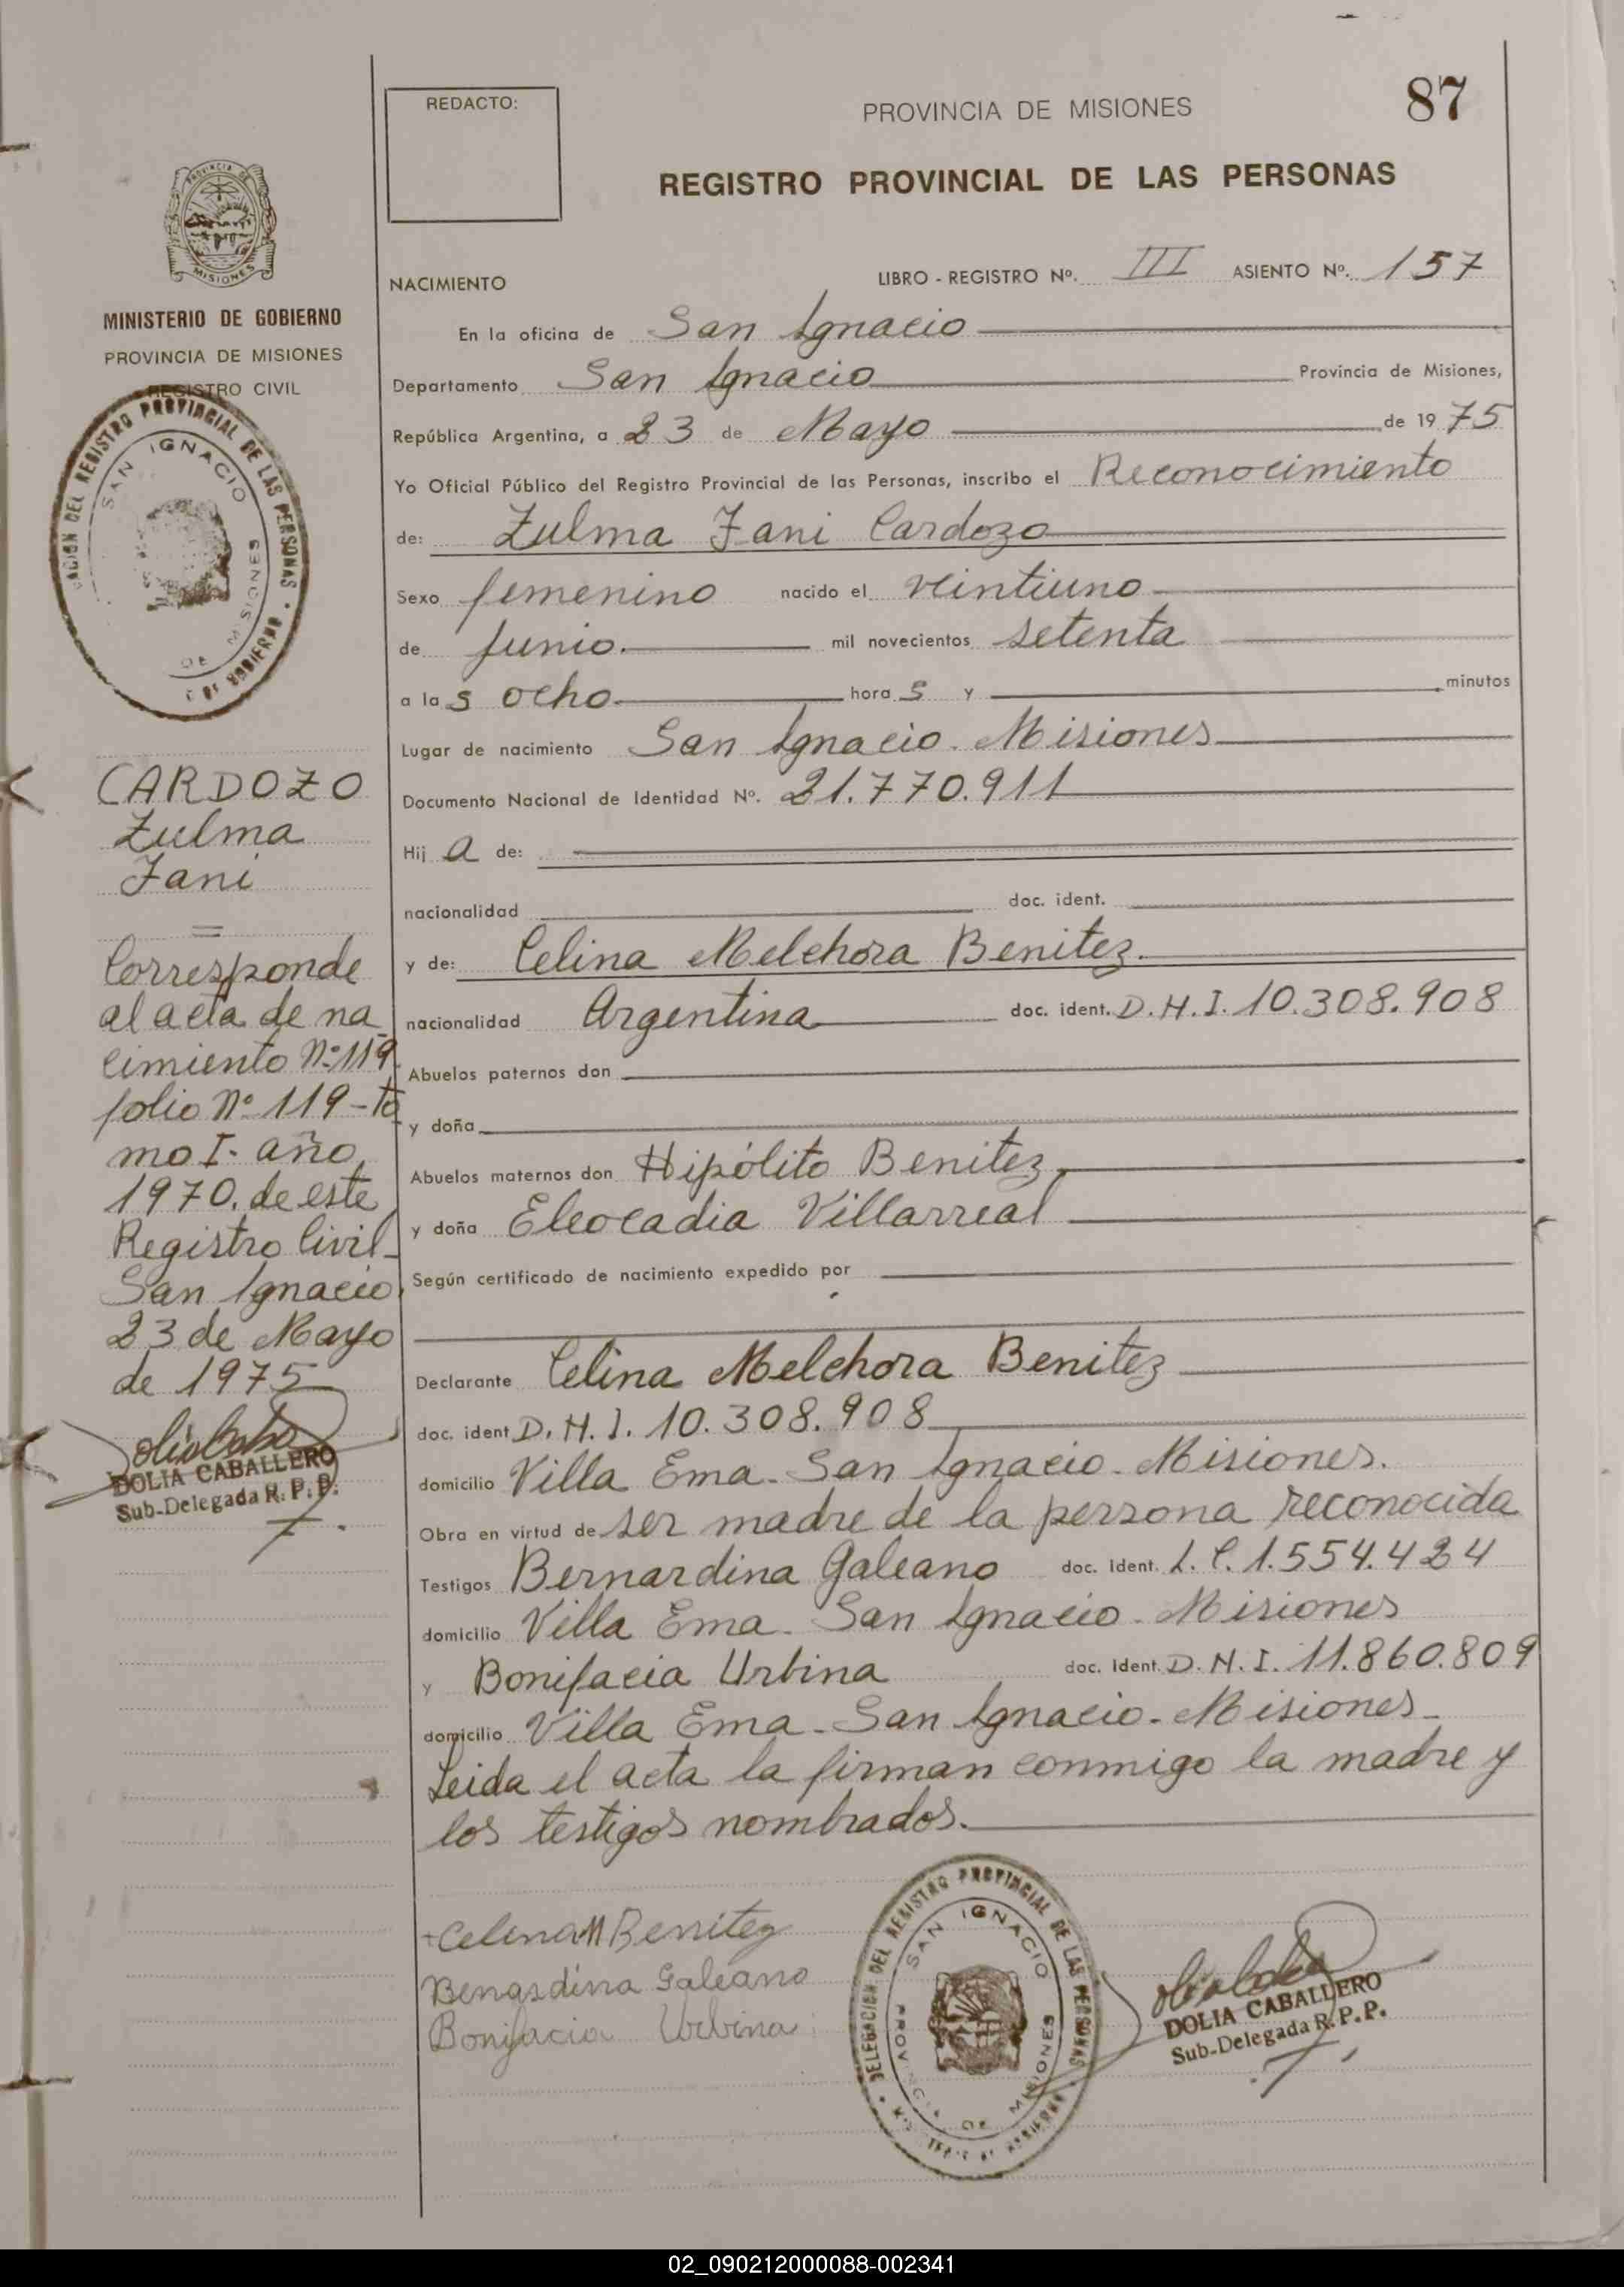 87
REDACTO:
PROVINCIA DE MISIONES
REGISTRO PROVINCIAL DE LAS PERSONAS
NACIMIENTO
LIBRO - REGISTRO Nº. III ASIENTO Nº. 157
En la oficina de San Ignacio
Departamento San Ignacio Provincia de Misiones,
República Argentina, a 23 de Mayo de 1975
Yo Oficial Público del Registro Provincial de las Personas, inscribo el Reconocimiento
de: Zulma Fani Cardozo
Sexo femenino nacido el veintiuno
de Junio. mil novecientos setenta
a las ocho horas y minutos
Lugar de nacimiento San Ignacio. Misiones
Documento Nacional de Identidad Nº. 21.770.911
Hija de:
nacionalidad doc. ident.
y de: Celina Melchora Benitez.
nacionalidad Argentina doc. ident. D.N.I. 10.308.908
Abuelos paternos don
y doña
Abuelos maternos don Hipólito Benitez,
y doña Eleocadia Villarreal
Según certificado de nacimiento expedido por
Declarante Celina Melchora Benitez
doc. ident D.N.I. 10.308.908
domicilio Villa Ema. San Ignacio. Misiones.
Obra en virtud de ser madre de la persona reconocida
Testigos Bernardina Galeano doc. ident. L.C. 1.554.424
domicilio Villa Ema. San Ignacio. Misiones
y Bonifacia Urbina doc. Ident. D.N.I. 11.860.809
domicilio Villa Ema. San Ignacio. Misiones
Leida el acta la firman conmigo la madre y
los testigos nombrados.
Celina M Benitez
Benardina Galeano
Bonifacia Urbina
DELEGACION DEL REGISTRO PROVINCIAL DE LAS PERSONAS
SAN IGNACIO
PROVINCIA DE MISIONES
DOLIA CABALLERO
Sub-Delegada R.P.P.
PROVINCIA DE
MISIONES
MINISTERIO DE GOBIERNO
PROVINCIA DE MISIONES
REGISTRO CIVIL
DEL REGISTRO PROVINCIAL DE LAS PERSONAS
SAN IGNACIO
DE MISIONES
CARDOZO
Zulma
Fani
=
Corresponde
al acta de na
cimiento Nº 119
folio Nº 119-to
mo I. año
1970. de este
Registro Civil
San Ignacio,
23 de Mayo
de 1975
DOLIA CABALLERO
Sub-Delegada R.P.P.
02_090212000088-002341